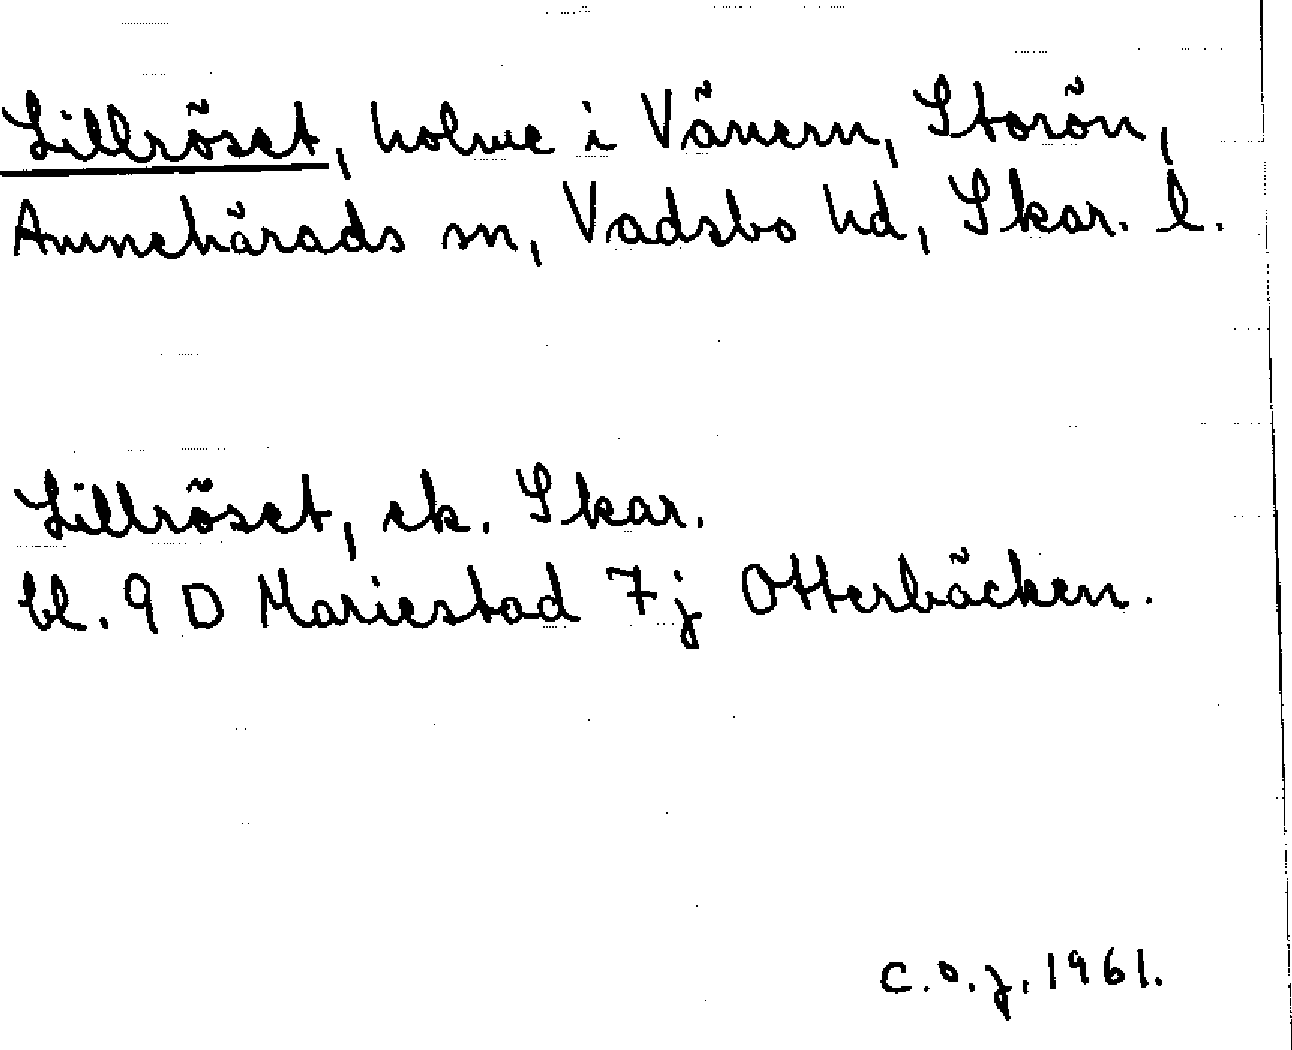 Lillröset, holme i Vänern, Storön,
Amnehärads sn, Vadsbo hd, Skar. l.
Lillröset, ek. Skar.
bl. 9 D Mariestad 7j Otterbäcken.
C.O.J. 1961.